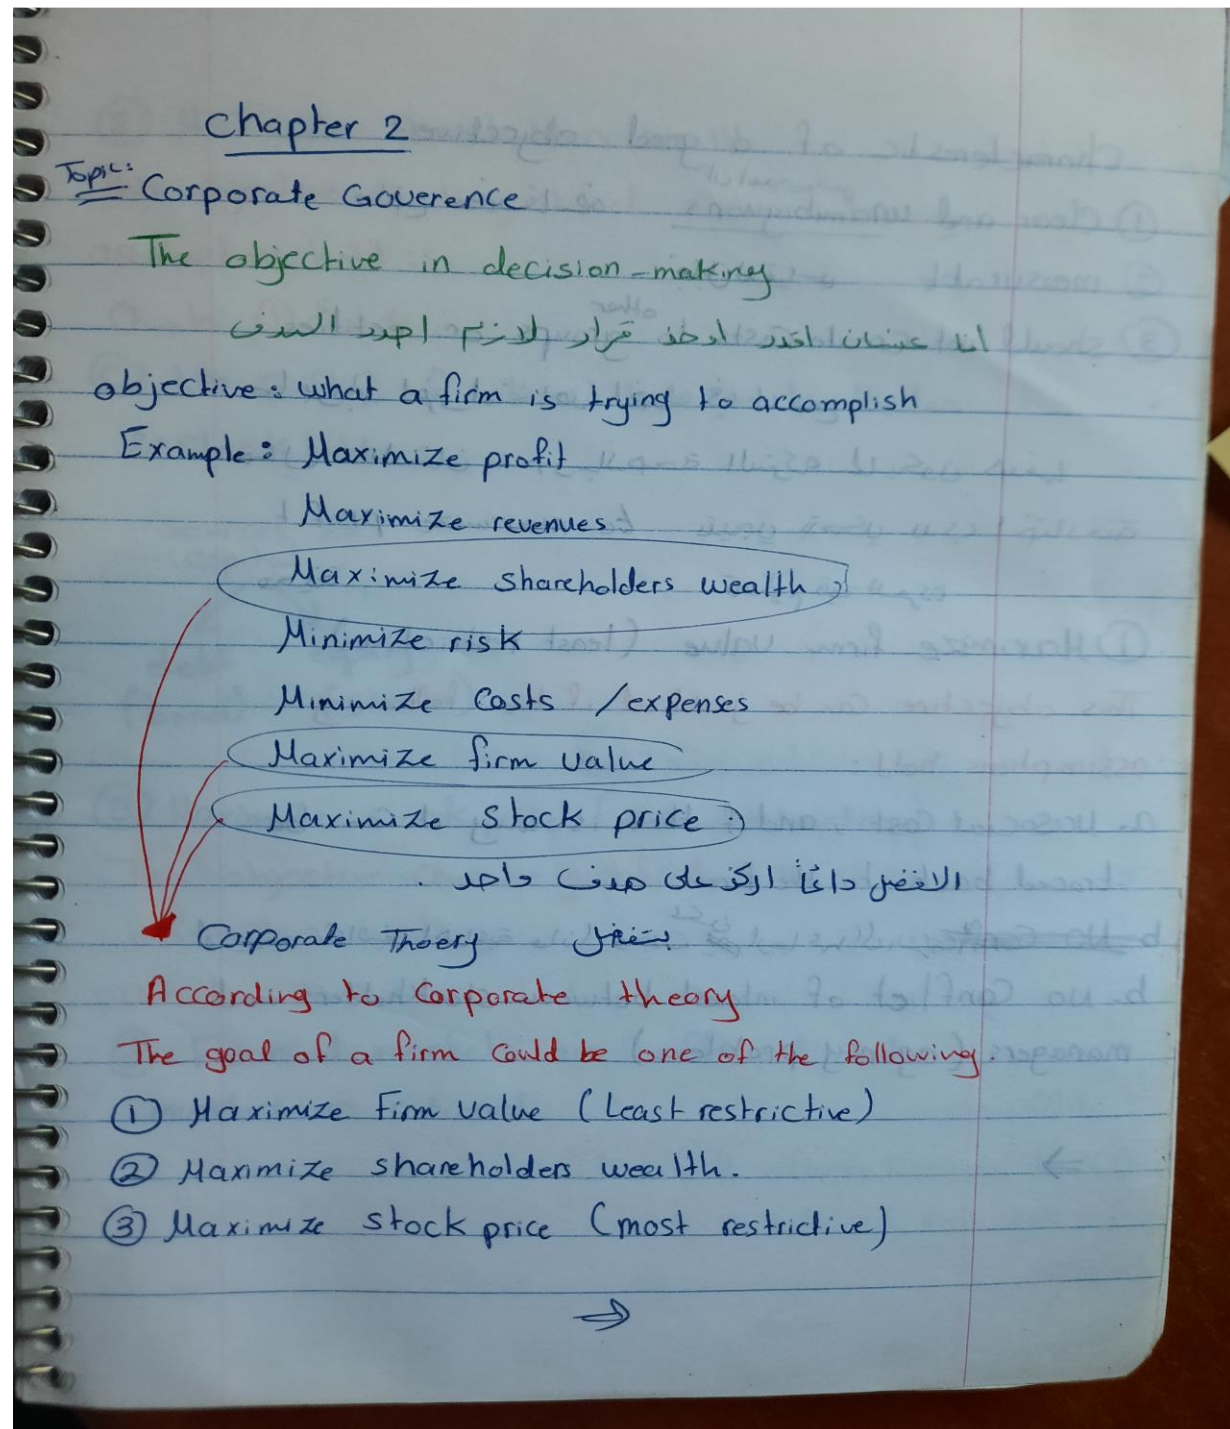 Chapter 2
Topic: Corporate Goverence
The objective in decision-making
انا عشان اقدر اوخذ قرار لازم احدد الهدف
objective: what a firm is trying to accomplish
Example: Maximize profit
Maximize revenues
Maximize shareholders wealth
Minimize risk
Minimize Costs / expenses
Maximize firm value
Maximize stock price
الافضل دائماً اركز على هدف واحد.
Corporate Thoery بتفضل
According to Corporate theory
The goal of a firm could be one of the following.
① Maximize Firm value (Least restrictive)
② Maximize shareholders wealth.
③ Maximize stock price (most restrictive)
⇒